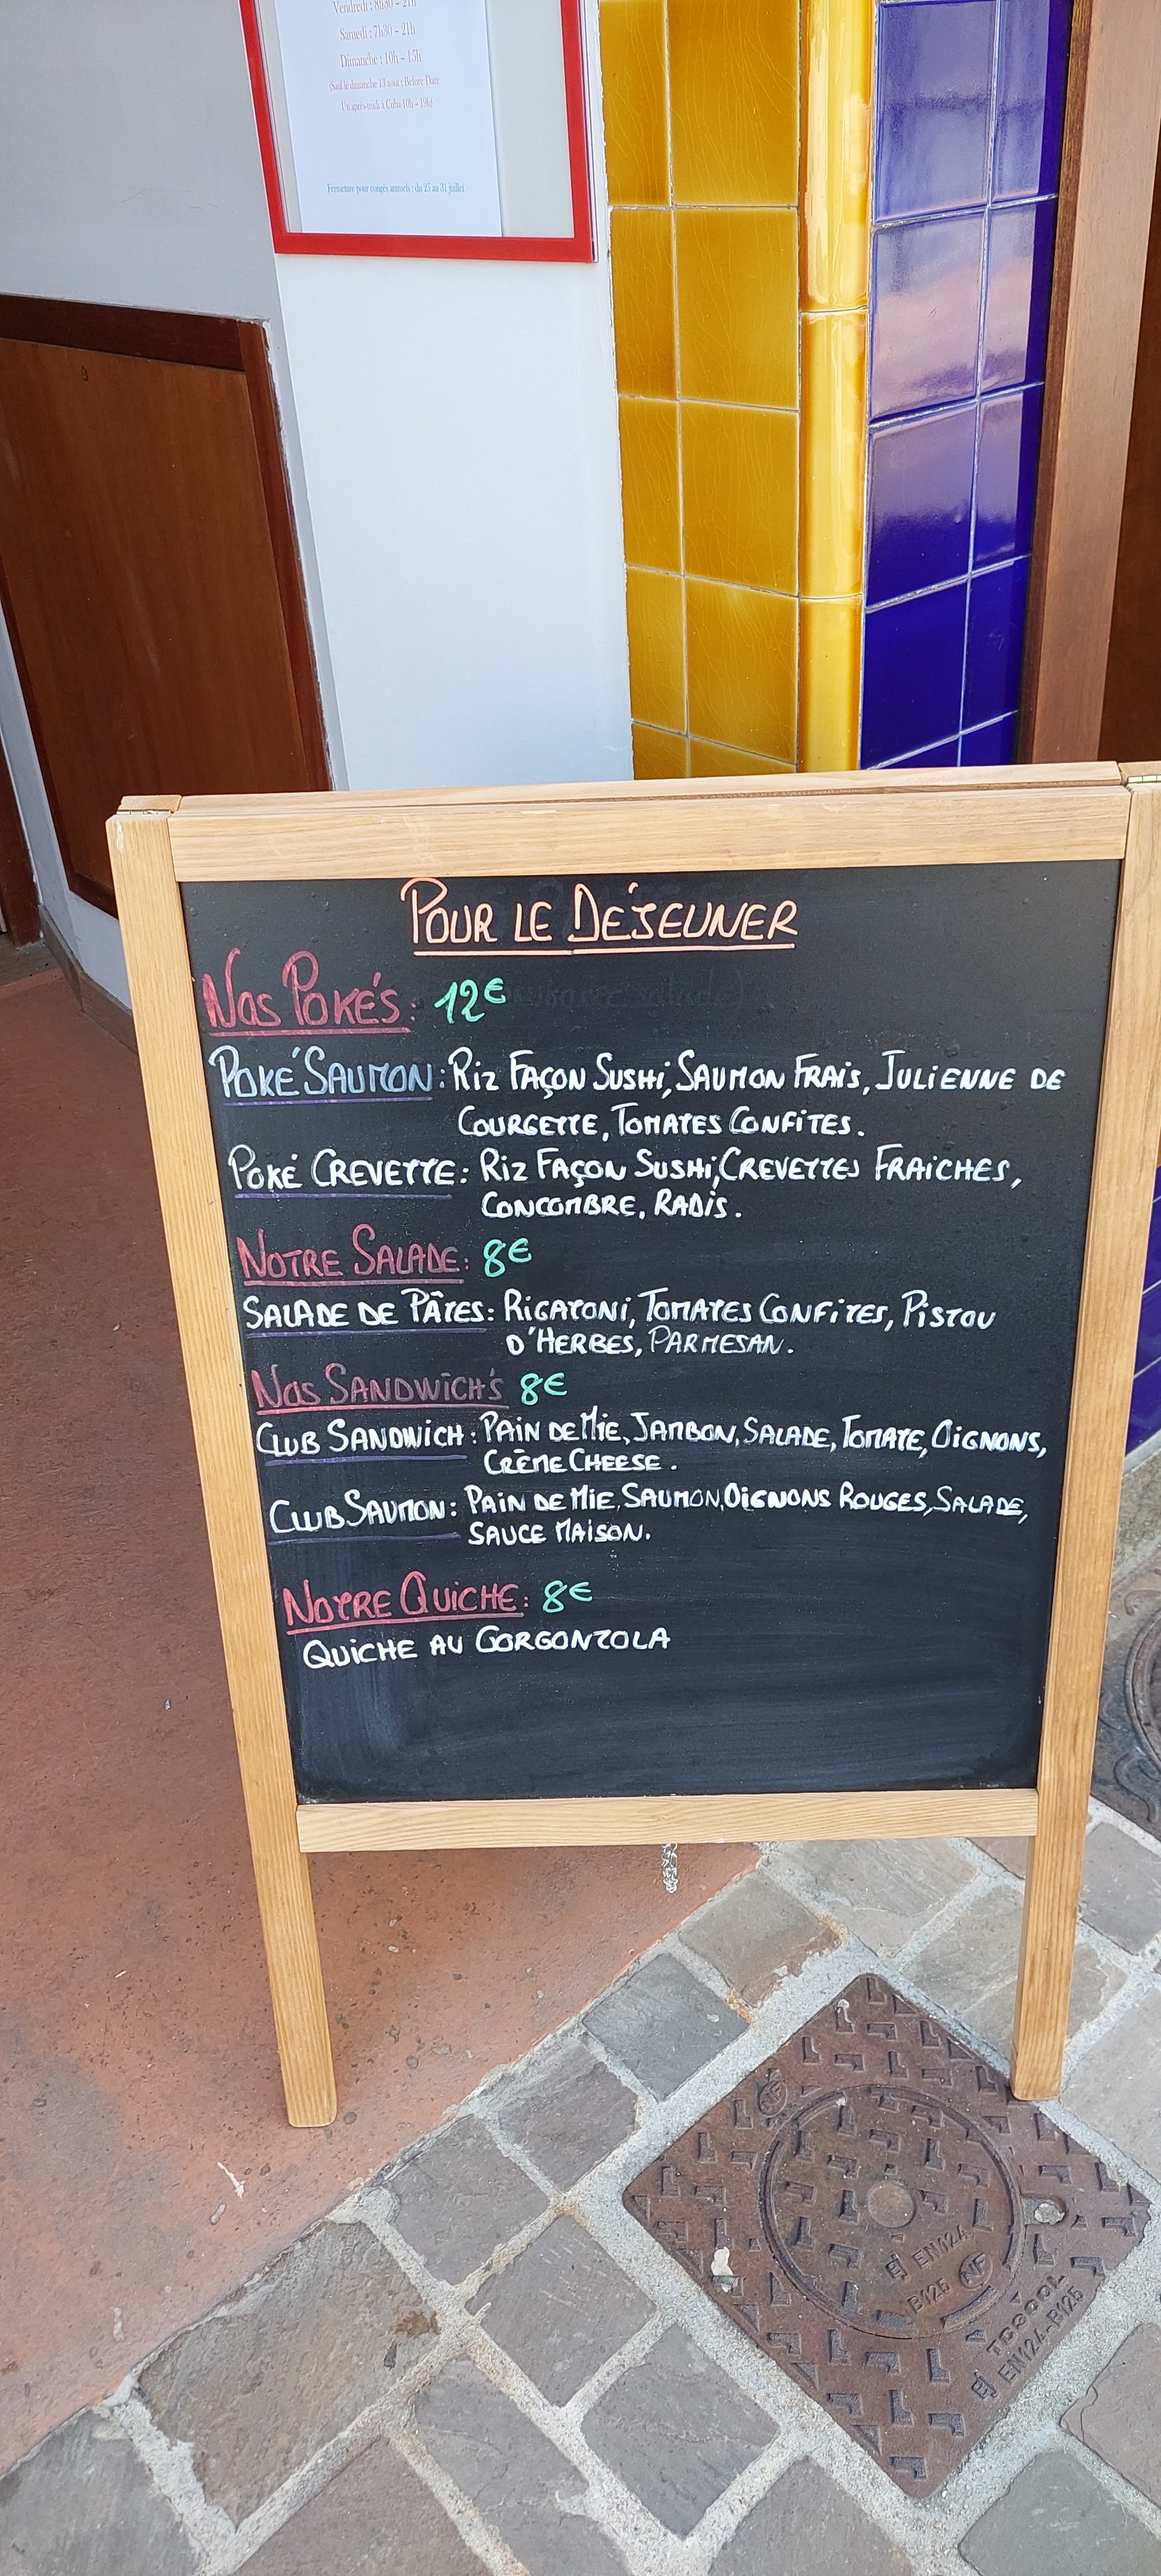 Vendredi : 8h30 - 21h
Samedi : 7h30 - 21h
Dimanche : 10h - 15h
(Sauf le dimanche 13 août : Before Dare
Un après-midi à Cuba 10h - 19h)
Fermeture pour congés annuels : du 25 au 31 juillet
POUR LE DÉJEUNER
NOS POKÉS : 12€
POKÉ SAUMON : RIZ FAÇON SUSHI, SAUMON FRAIS, JULIENNE DE
COURGETTE, TOMATES CONFITES.
POKÉ CREVETTE : RIZ FAÇON SUSHI, CREVETTES FRAICHES,
CONCOMBRE, RADIS.
NOTRE SALADE : 8€
SALADE DE PÂTES : RIGATONI, TOMATES CONFITES, PISTOU
D'HERBES, PARMESAN.
NOS SANDWICH'S 8€
CLUB SANDWICH : PAIN DE MIE, JAMBON, SALADE, TOMATE, OIGNONS,
CRÈME CHEESE.
CLUB SAUMON : PAIN DE MIE, SAUMON, OIGNONS ROUGES, SALADE,
SAUCE MAISON.
NOTRE QUICHE : 8€
QUICHE AU GORGONZOLA
EN124
B125 NF
EN124-B125